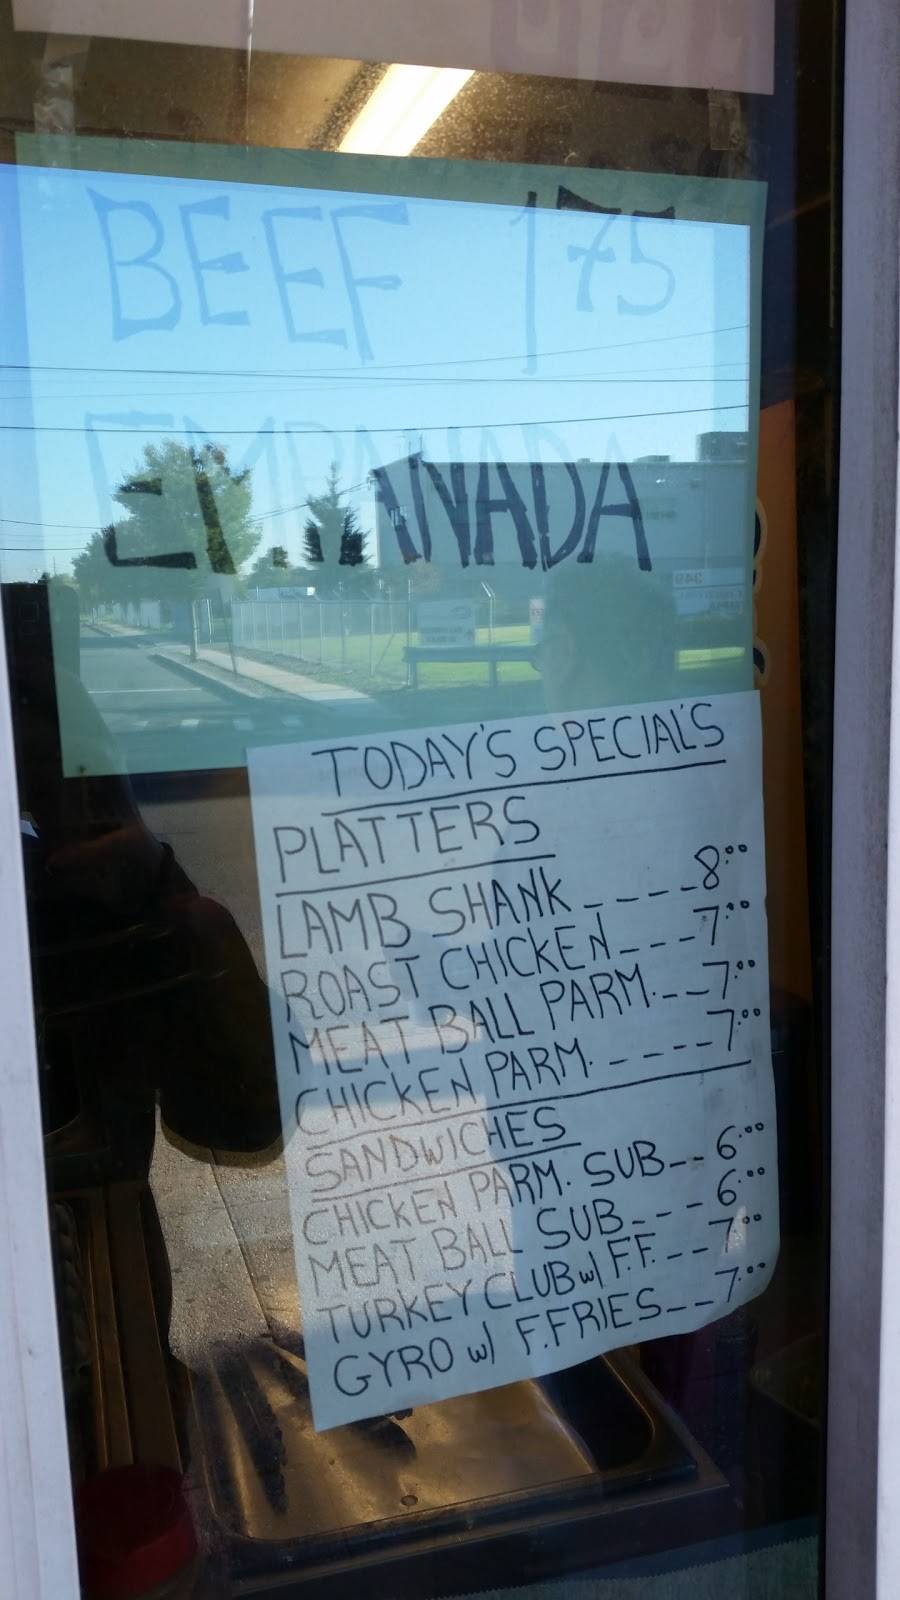 BEEF 1 75
EMPANADA
349
TODAY'S SPECIAL'S
PLATTERS
LAMB SHANK ----- 8.00
ROAST CHICKEN --- 7.00
MEAT BALL PARM. -- 7.00
CHICKEN PARM. ----- 7.00
SANDWICHES
CHICKEN PARM. SUB -- 6.00
MEAT BALL SUB --- 6.00
TURKEY CLUB w/ F.F. -- 7.00
GYRO w/ F.FRIES -- 7.00